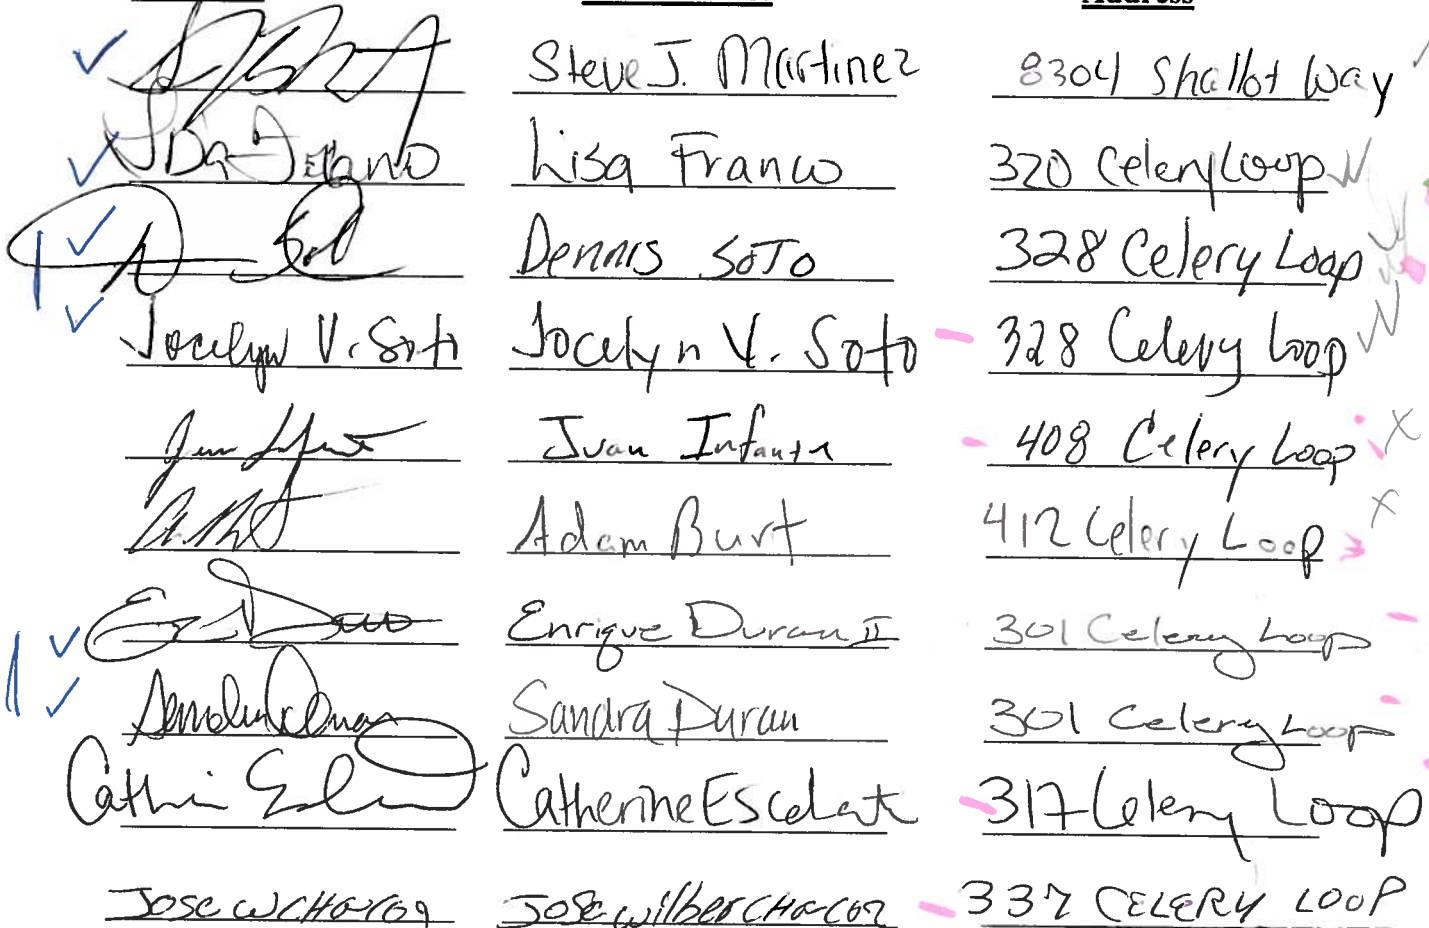 Address
Steve J. Martinez 8304 Shallot Way
Lisa Franco 320 Celery Loop
Dennis Soto 328 Celery Loop
Jocelyn V. Soto Jocelyn V. Soto 328 Celery Loop
Juan Infante 408 Celery Loop
Adam Burt 412 Celery Loop
Enrique Duran II 301 Celery Loop
Sandra Duran 301 Celery Loop
Catherine Escalante 317 Celery Loop
Jose W CHacon Jose wilber CHacon 337 CELERY LOOP